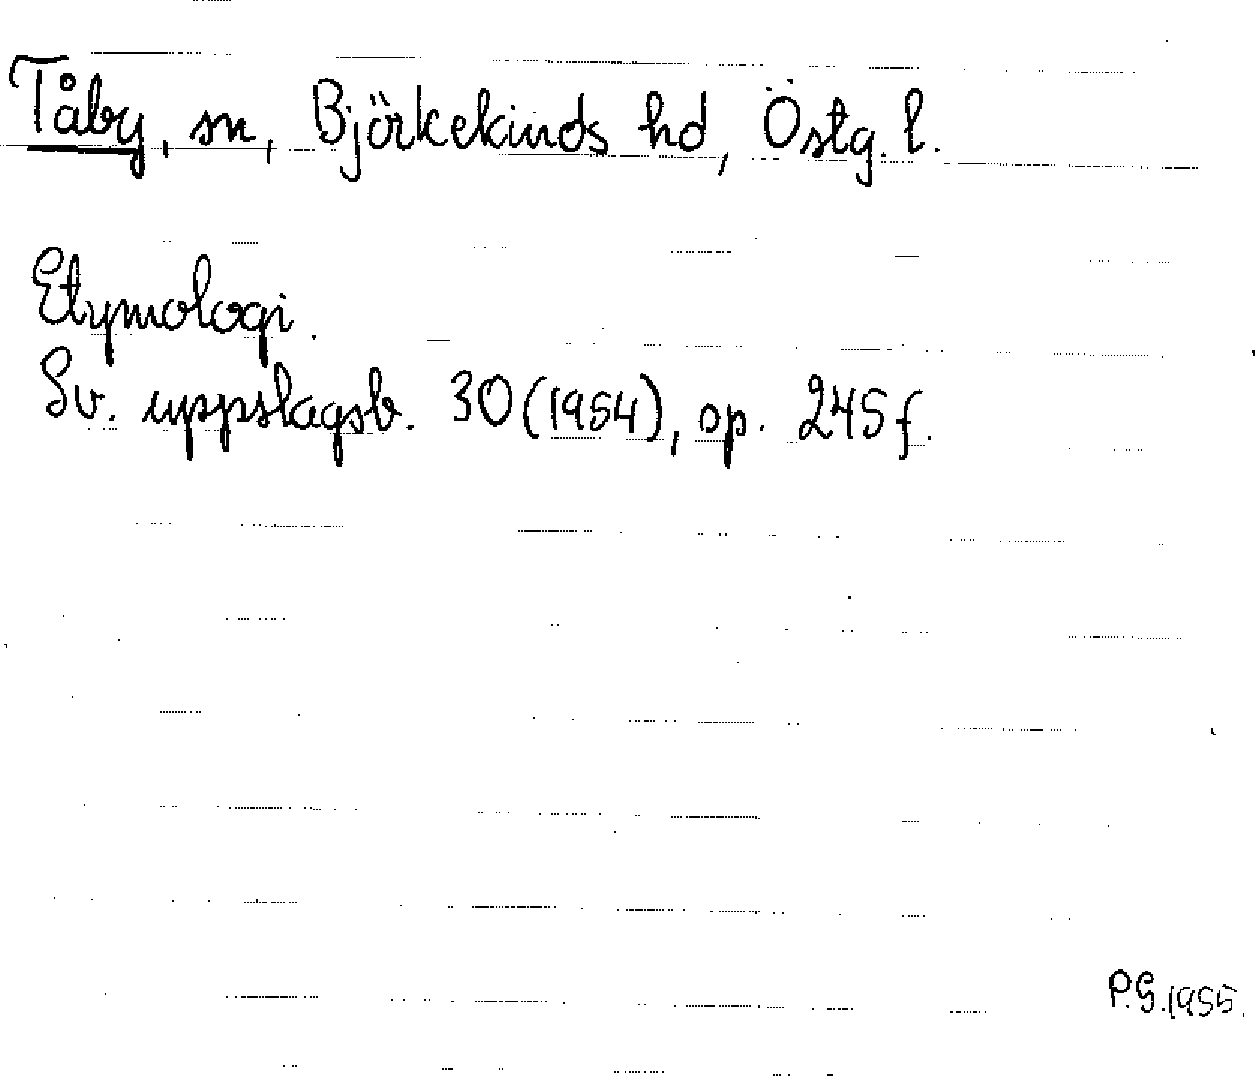 Tåby, sn, Björkekinds hd, Östg. l.
Etymologi.
Sv. uppslagsb. 30 (1954), sp. 245 f.
P.G. 1955.